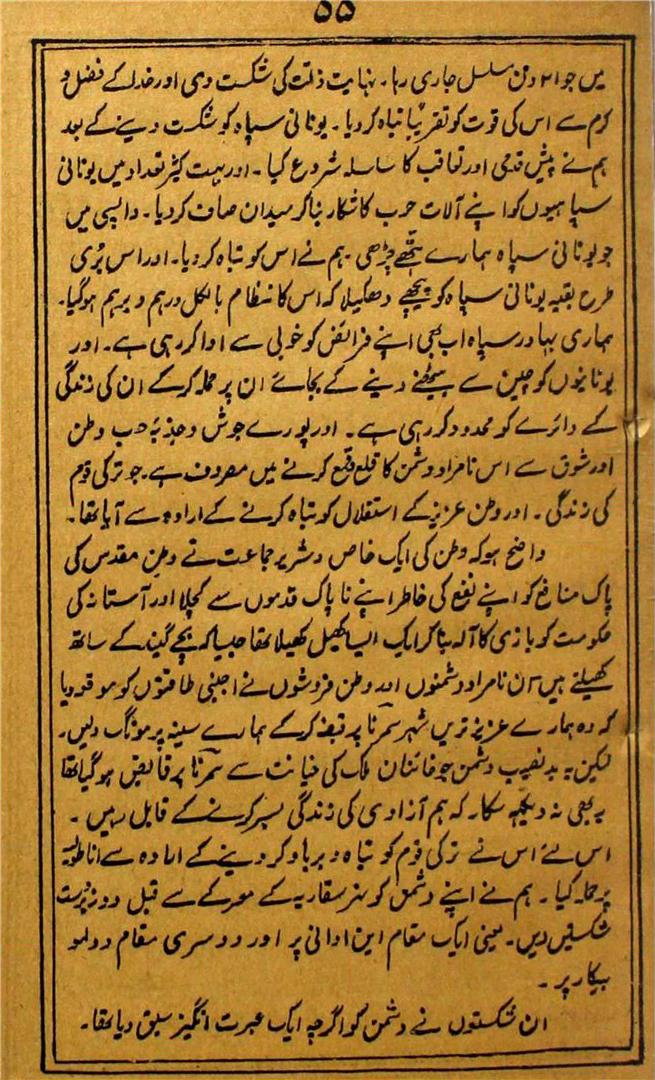 ۵۵
میں جو ۲۱ دن مسلسل جاری رہا۔ نہایت ذلت کی شکست دی اور خدا کے فضل و
کرم سے اس کی قوت کو تقریباً تباہ کر دیا۔ یونانی سپاہ کو شکست دینے کے بعد
ہم نے پیش قدمی اور تعاقب کا سلسلہ شروع کیا۔ اور بہت کثیر تعداد میں یونانی
سپاہیوں کو اپنے آلات حرب کا شکار بنا کر میدان صاف کر دیا۔ واپسی میں
جو یونانی سپاہ ہمارے ہتھے چڑھی۔ ہم نے اس کو تباہ کر دیا۔ اور اس بُری
طرح بقیہ یونانی سپاہ کو پیچھے دھکیلا کہ اس کا نظام بالکل درہم و برہم ہو گیا۔
ہماری بہادر سپاہ اب بھی اپنے فرائض کو خوبی سے ادا کر رہی ہے۔ اور
یونانیوں کو چین سے بیٹھنے دینے کے بجائے ان پر حملہ کر کے ان کی زندگی
کے دائرے کو محدود کر رہی ہے۔ اور پورے جوش و جذبۂ حب وطن
اور شوق سے اس نامراد دشمن کا قلع قمع کرنے میں مصروف ہے۔ جو ترکی قوم
کی زندگی۔ اور وطن عزیز کے استقلال کو تباہ کرنے کے ارادہ سے آیا تھا۔
واضح ہو کہ وطن کی ایک خاص و شریر جماعت نے وطن مقدس کی
پاک منافع کو اپنے نفع کی خاطر اپنے ناپاک قدموں سے کچلا اور آستانہ کی
حکومت کو بازی کا آلہ بنا کر ایک ایسا کھیل کھیلا تھا جیسا کہ بچے گیند کے ساتھ
کھیلتے ہیں ان نامراد دشمنوں اور وطن فروشوں نے اجنبی طاقتوں کو موقع دیا
کہ وہ ہمارے عزیز ترین شہر سمرنا پر قبضہ کر کے ہمارے سینہ پر مونگ دلیں۔
لیکن یہ بدنصیب دشمن جو خائنان ملک کی خیانت سے سمرنا پر قابض ہو گیا تھا
یہ بھی نہ دیکھ سکا۔ کہ ہم آزادی کی زندگی بسر کرنے کے قابل رہیں۔
اس لئے اس نے ترکی قوم کو تباہ و برباد کر دینے کے ارادہ سے اناطولیہ
پر حملہ کیا۔ ہم نے اپنے دشمن کو نہر سقاریہ کے معرکے سے قبل دو زبردست
شکستیں دیں۔ یعنی ایک مقام این اوانی پر اور دوسری مقام دولمو
بیکار پر۔
ان شکستوں نے دشمن کو اگرچہ ایک عبرت انگیز سبق دیا تھا۔